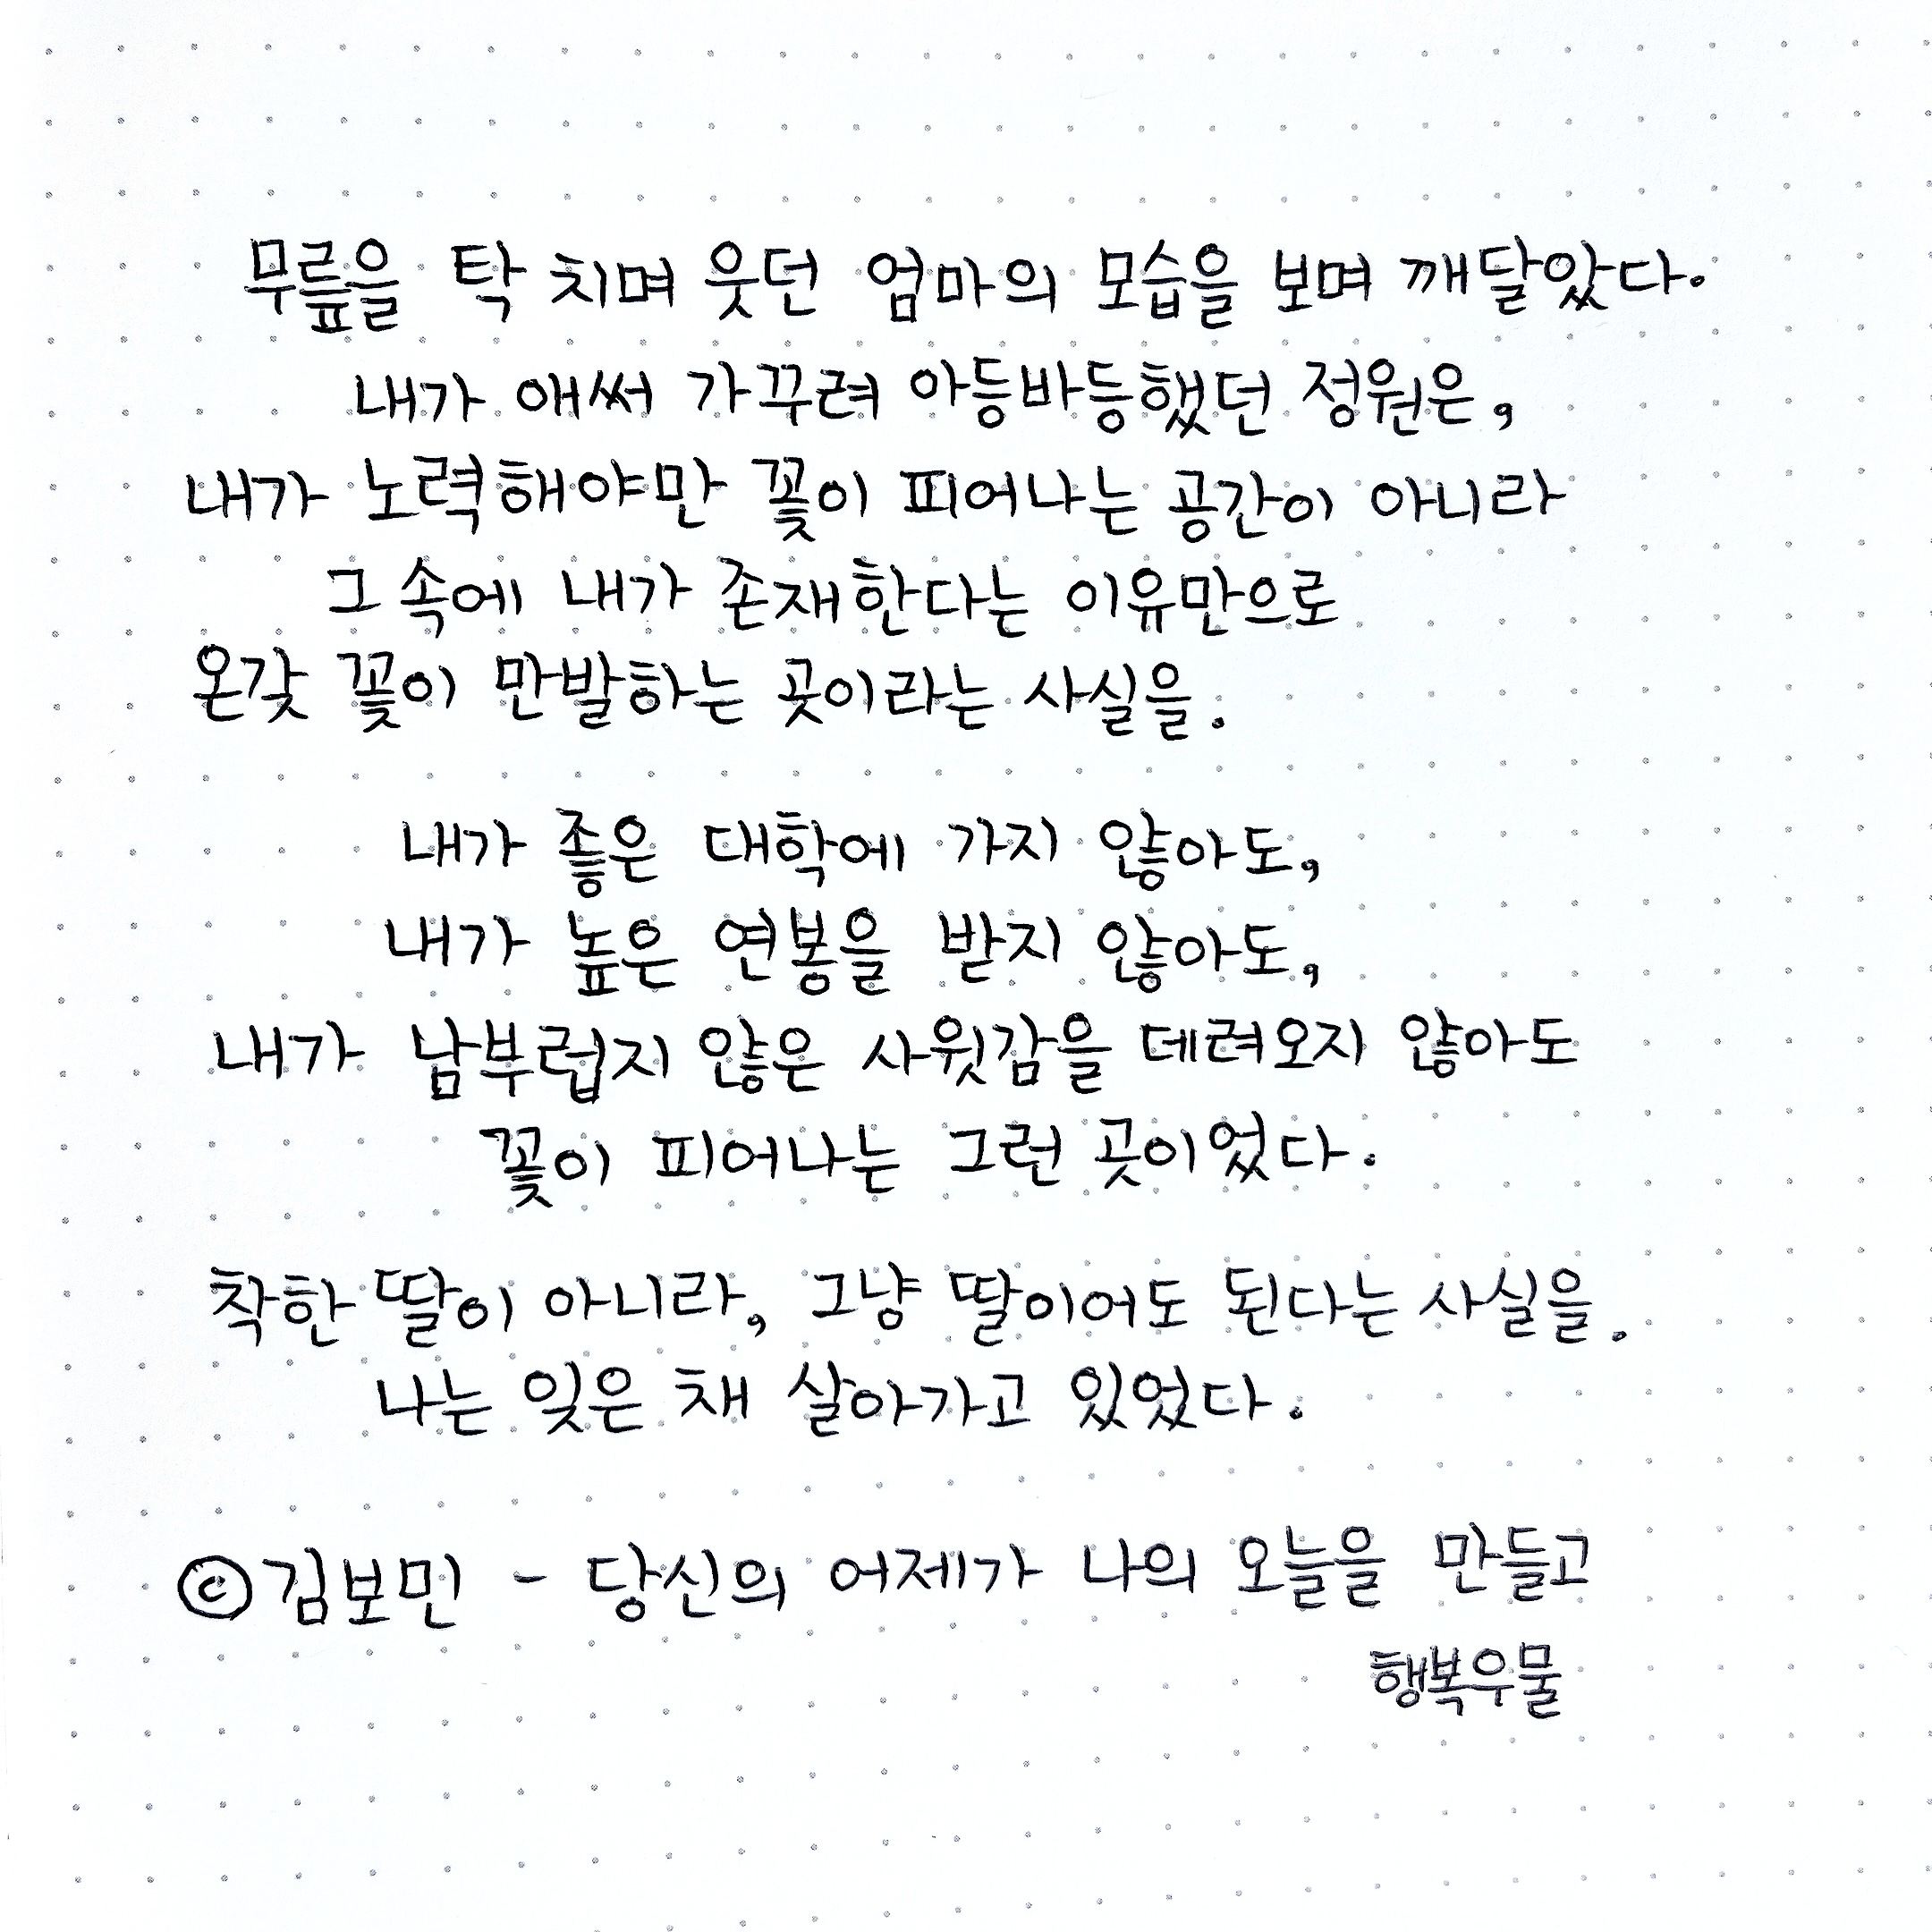 무릎을 탁 치며 웃던 엄마의 모습을 보며 깨달았다.
내가 애써 가꾸려 아등바등했던 정원은,
내가 노력해야만 꽃이 피어나는 공간이 아니라
그 속에 내가 존재한다는 이유만으로
온갖 꽃이 만발하는 곳이라는 사실을.
내가 좋은 대학에 가지 않아도,
내가 높은 연봉을 받지 않아도,
내가 남부럽지 않은 사윗감을 데려오지 않아도
꽃이 피어나는 그런 곳이었다.
착한 딸이 아니라, 그냥 딸이어도 된다는 사실을.
나는 잊은 채 살아가고 있었다.
© 김보민 - 당신의 어제가 나의 오늘을 만들고
행복우물